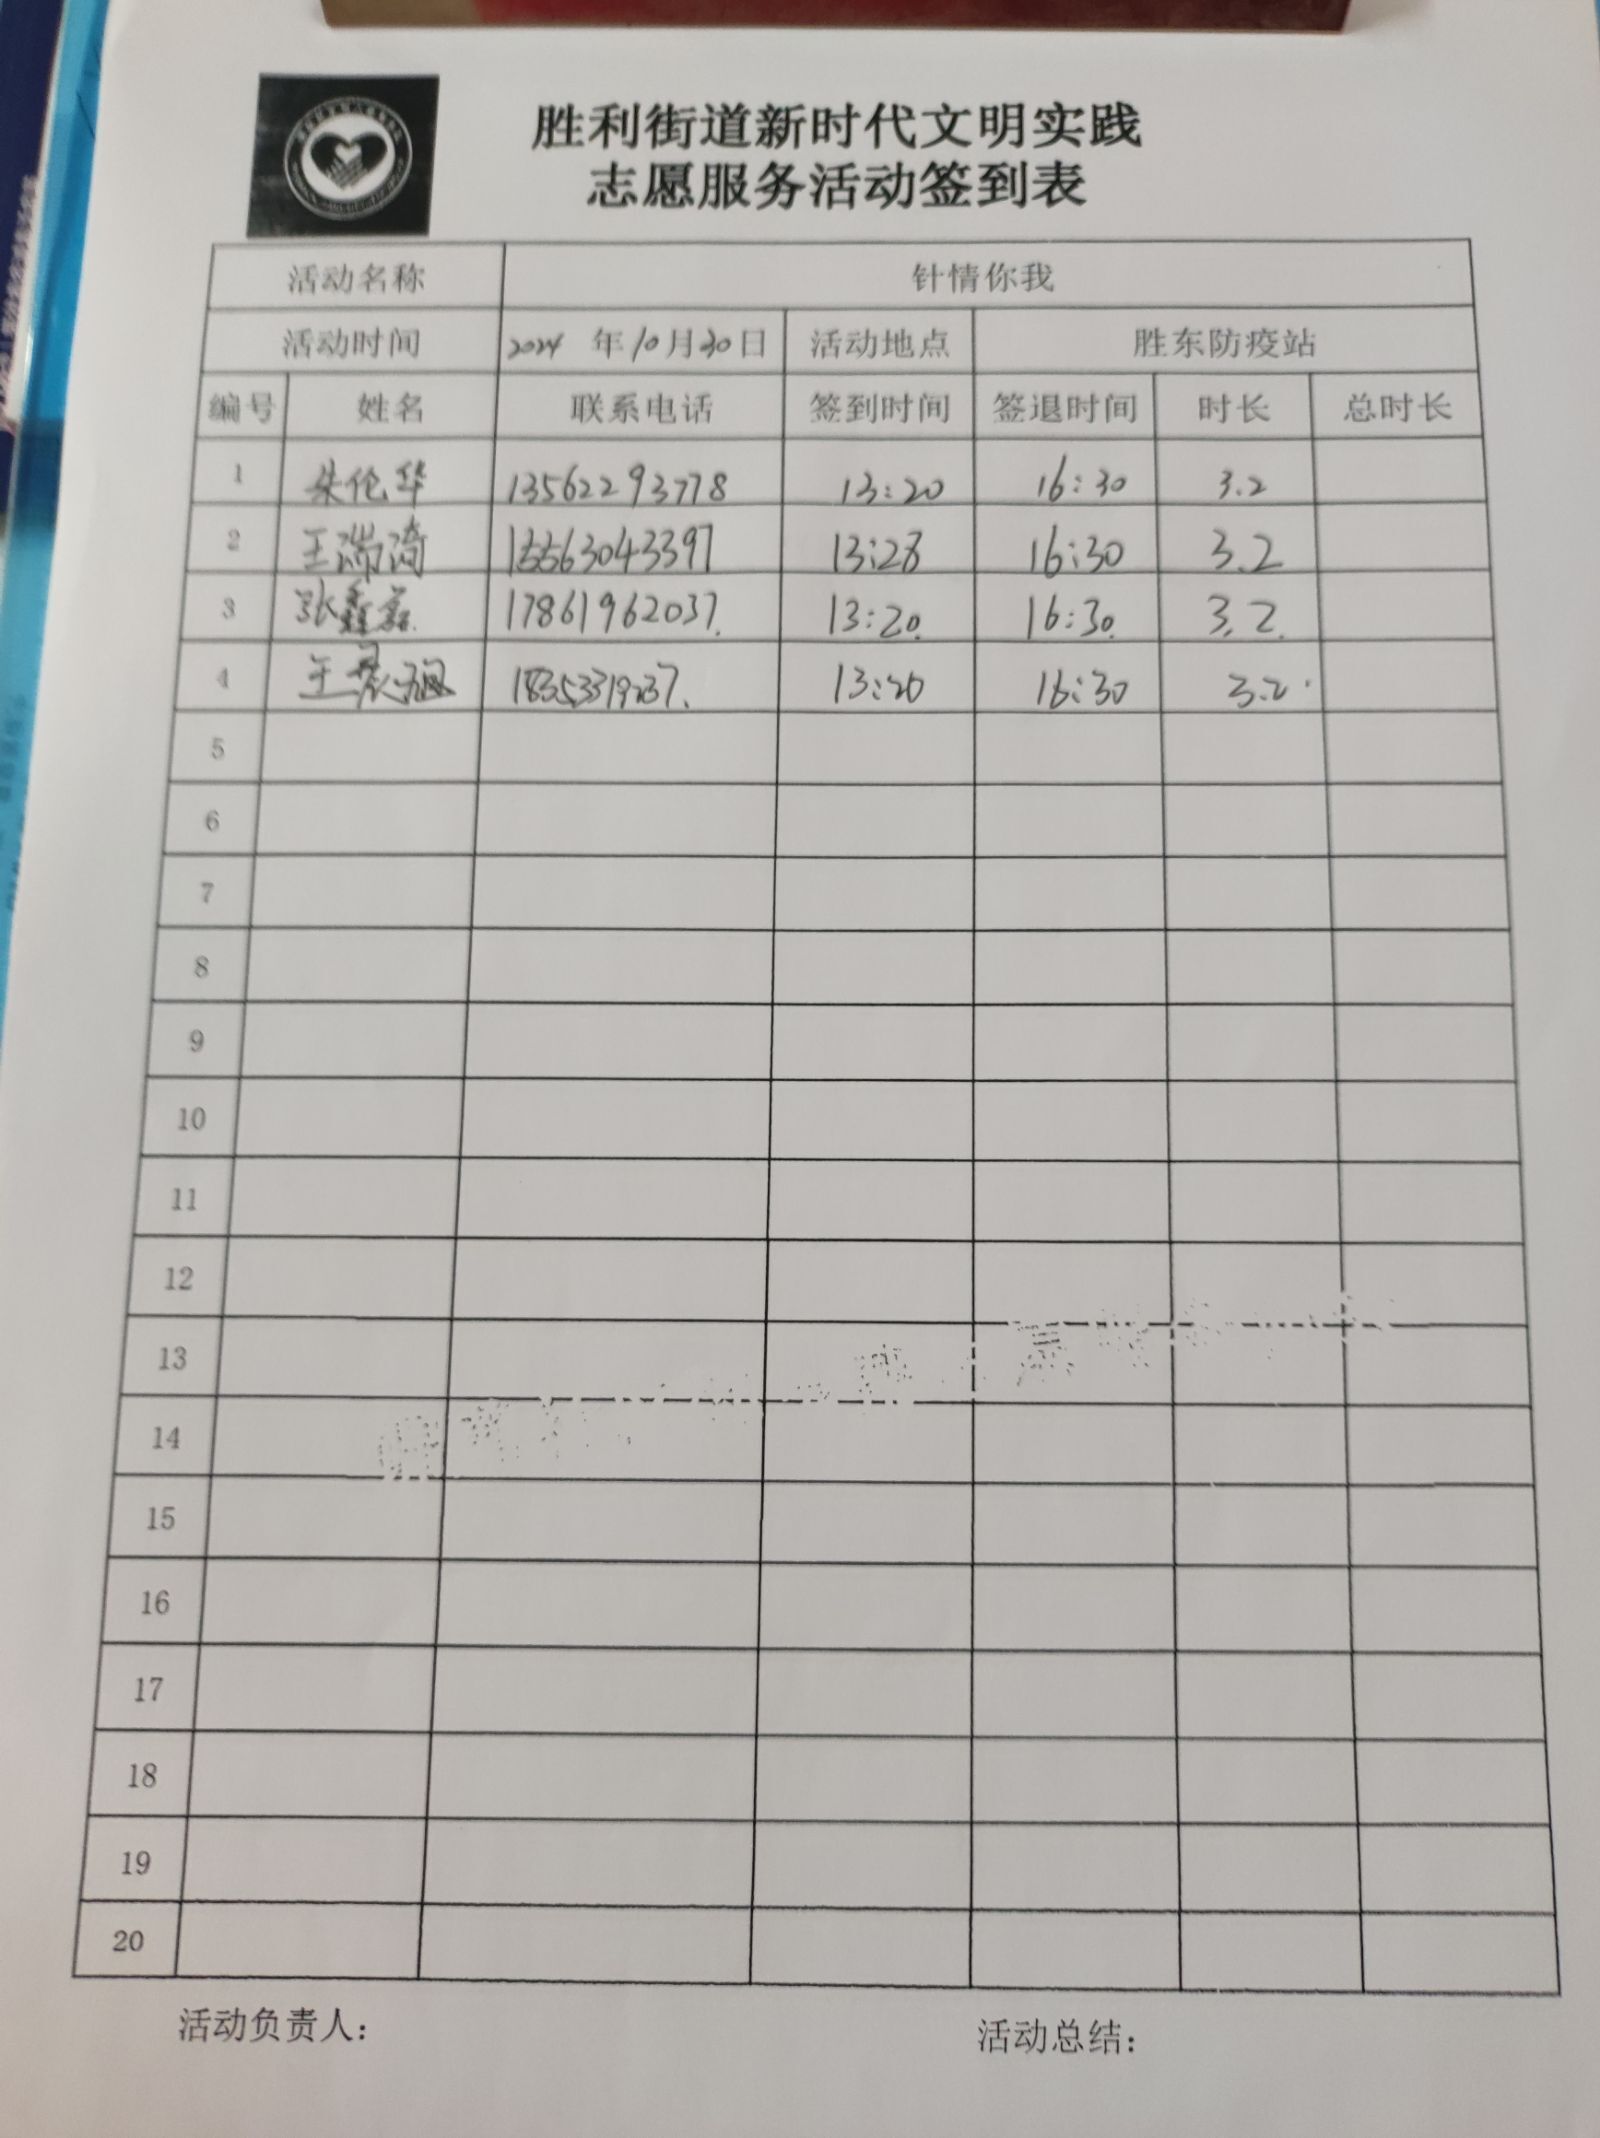 胜利街道新时代文明实践
志愿服务活动签到表
活动名称 针情你我
活动时间 2024 年10月30日 活动地点 胜东防疫站
编号 姓名 联系电话 签到时间 签退时间 时长 总时长
1 朱伦华 13562293778 13:20 16:30 3.2
2 王瑞漪 15563043397 13:28 16:30 3.2
3 张鑫磊 17861962037. 13:20 16:30 3.2
4 王 13:20 16:30 3.2
5
6
7
8
9
10
11
12
13
14
15
16
17
18
19
20
活动负责人: 活动总结: